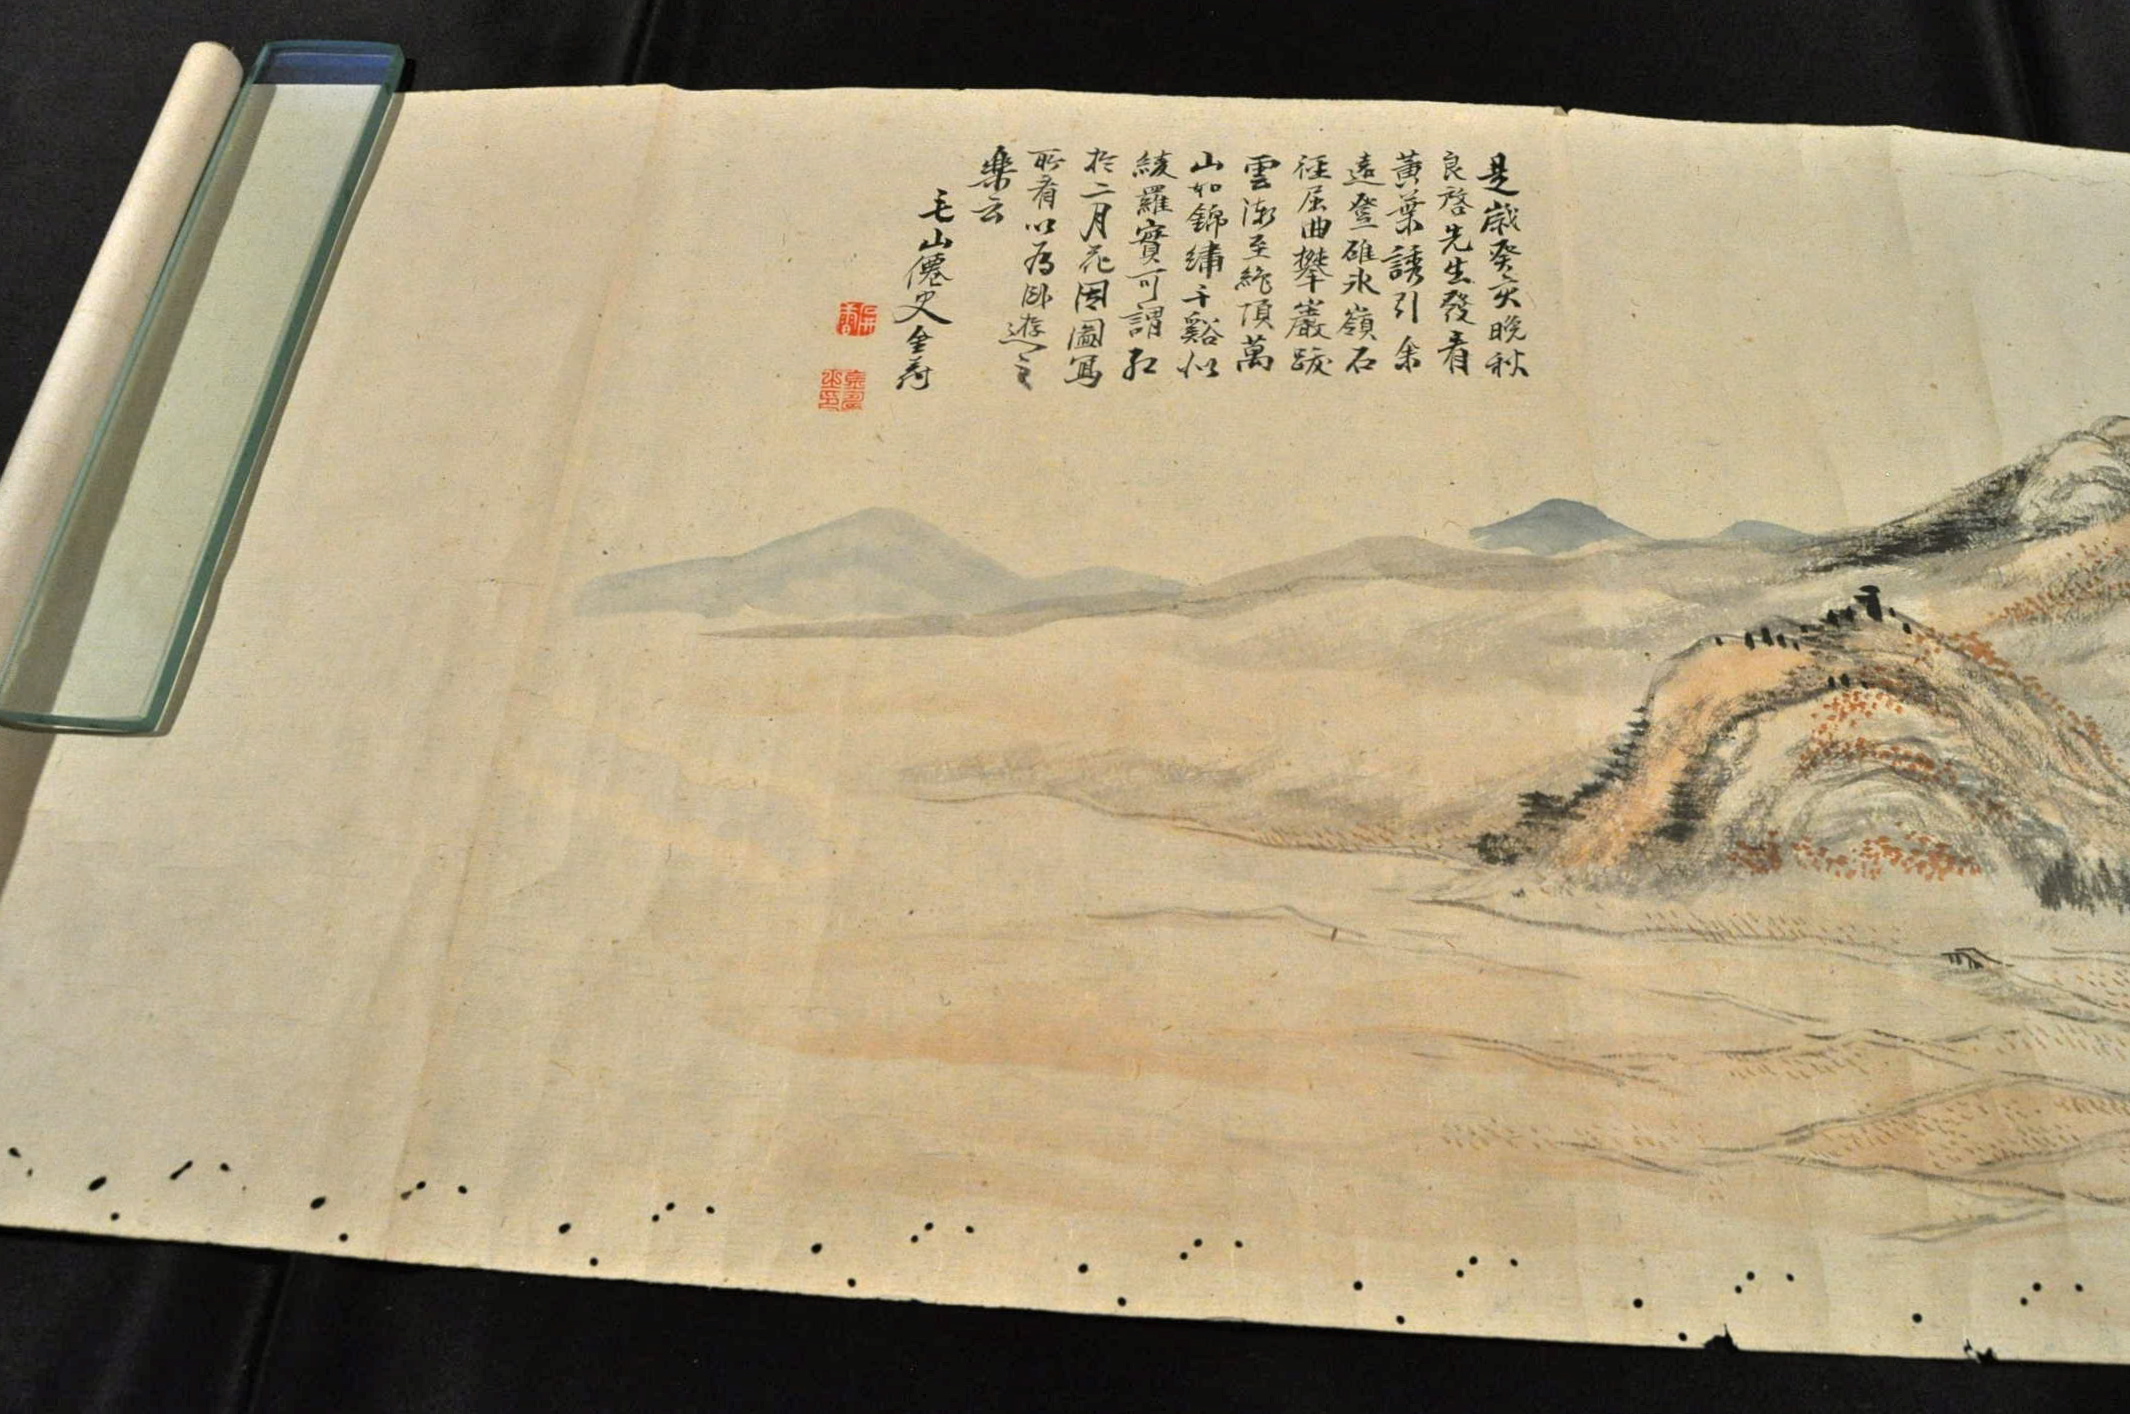 是歲癸亥晩秋
良啓先生發看
黃葉誘引余
遠登碓氷嶺石
徑屈曲攀巖踐
雲漸至絶頂萬
山如錦繡千谿似
綾羅寶可謂紅
於二月花因圖寫
所看以爲臥遊之
樂云
毛山僊史金荷